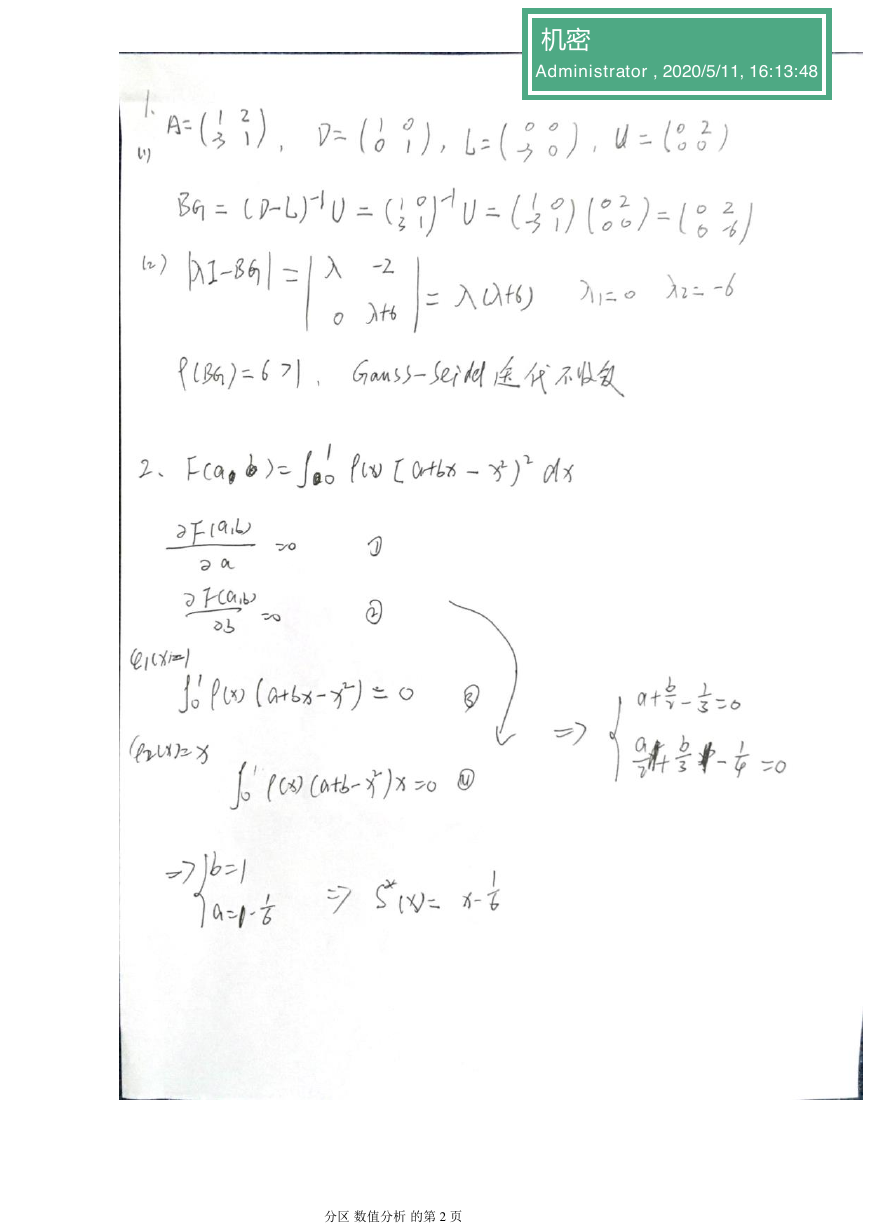 机密
Administrator , 2020/5/11, 16:13:48
1.
(1) A=(1 2; 3 1), D=(1 0; 0 1), L=(0 0; -3 0), U=(0 2; 0 0)
BG = (D-L)⁻¹U = (1 0; 3 1)⁻¹U = (1 0; -3 1)(0 2; 0 0) = (0 2; 0 -6)
(2) |λI-BG| = |λ -2; 0 λ+6| = λ(λ+6) λ₁=0 λ₂=-6
ρ(BG)=6>1, Gauss-Seidel 迭代不收敛
2、 F(a,b)=∫₀¹ ρ(x) [a+bx-x²)² dx
∂F(a,b)/∂a =0 ①
∂F(a,b)/∂b =0 ②
φ₁(x)=1
∫₀¹ ρ(x)(a+bx-x²)=0 ③
φ₂(x)=x
∫₀¹ ρ(x)(a+b-x²)x=0 ④
⇒ { a+b/2-1/3=0
a/2+b/3-1/4=0
⇒ { b=1
a=-1/6 ⇒ S*(x)= x-1/6
分区 数值分析 的第 2 页